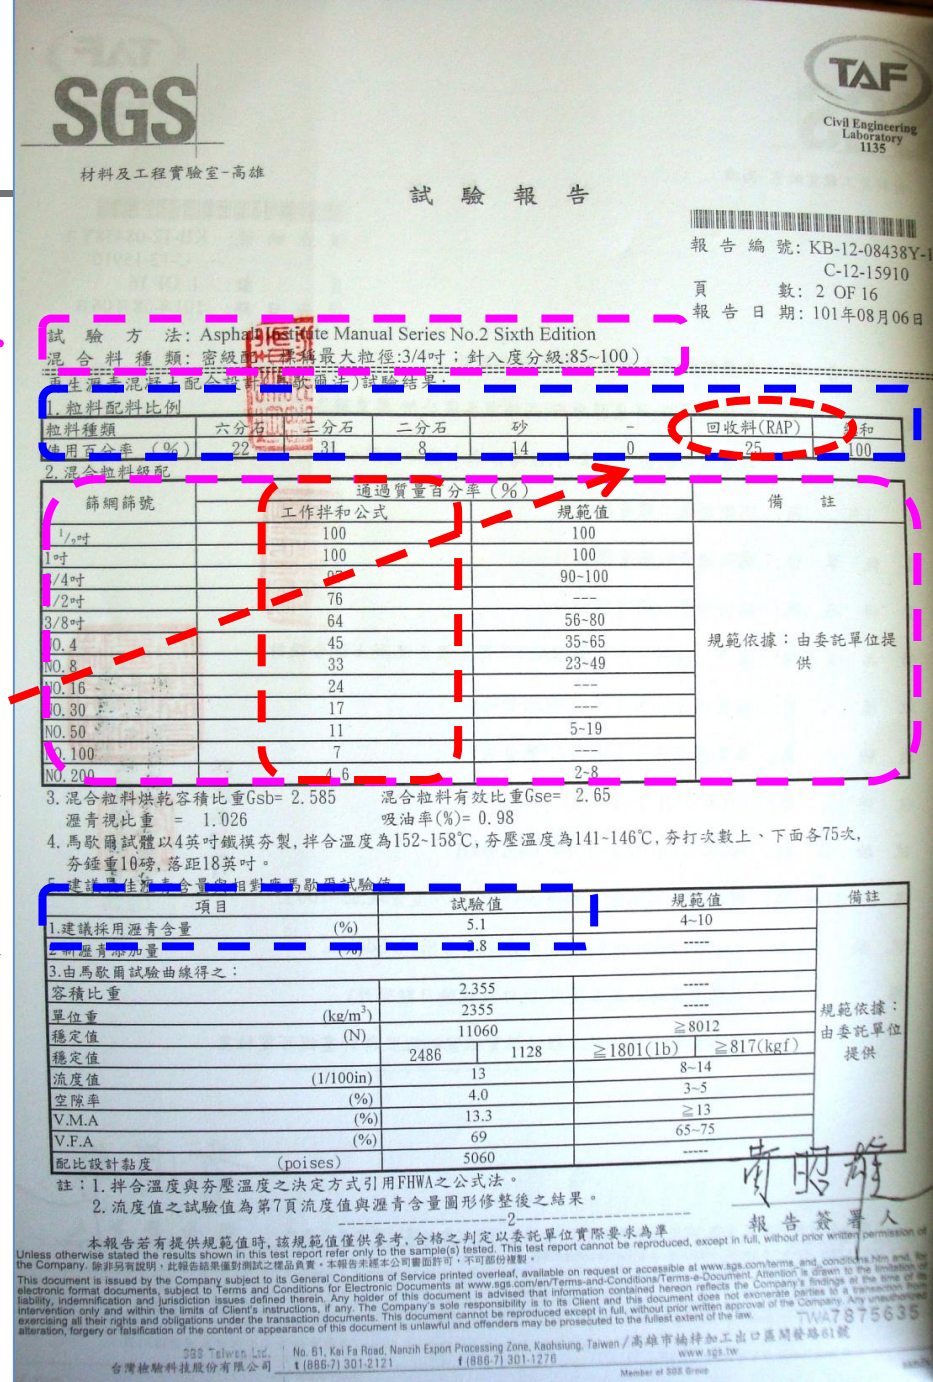 TAF
SGS
TAF
Civil Engineering
Laboratory
1135
材料及工程實驗室-高雄
試驗報告
報告編號: KB-12-08438Y-1
C-12-15910
頁數: 2 OF 16
報告日期: 101年08月06日
試驗方法: Asphalt Institute Manual Series No.2 Sixth Edition
混合料種類: 密級配(標稱最大粒徑:3/4吋；針入度分級:85~100)
再生瀝青混凝土配合設計(馬歇爾法)試驗結果:
1. 粒料配料比例
粒料種類 六分石 三分石 二分石 砂 - 回收料(RAP) 總和
使用百分率 (%) 22 31 8 14 0 25 100
2. 混合粒料級配
篩網篩號 通過質量百分率(%) 備註
工作拌和公式 規範值
吋 100 100
1吋 100 100
3/4吋 90~100
1/2吋 76 ---
3/8吋 64 56~80
NO.4 45 35~65
規範依據：由委託單位提供
NO.8 33 23~49
NO.16 24 ---
NO.30 17 ---
NO.50 11 5~19
NO.100 7 ---
NO.200 4.6 2~8
3. 混合粒料烘乾容積比重Gsb= 2.585 混合粒料有效比重Gse= 2.65
瀝青視比重 = 1.026 吸油率(%)= 0.98
4. 馬歇爾試體以4英吋鐵模夯製,拌合溫度為152~158℃,夯壓溫度為141~146℃,夯打次數上、下面各75次,
夯錘重10磅,落距18英吋。
5. 建議最佳瀝青含量與相對應馬歇爾試驗值
項目 試驗值 規範值 備註
1.建議採用瀝青含量 (%) 5.1 4~10
2.新瀝青添加量 (%) 3.8 -----
3.由馬歇爾試驗曲線得之：
容積比重 2.355 -----
單位重 (kg/m³) 2355 -----
規範依據：由委託單位提供
穩定值 (N) 11060 ≧8012
穩定值 2486 1128 ≧1801(lb) ≧817(kgf)
流度值 (1/100in) 13 8~14
空隙率 (%) 4.0 3~5
V.M.A (%) 13.3 ≧13
V.F.A (%) 69 65~75
配比設計黏度 (poises) 5060 -----
註：1. 拌合溫度與夯壓溫度之決定方式引用FHWA之公式法。
2. 流度值之試驗值為第7頁流度值與瀝青含量圖形修整後之結果。
黃昭雄
報告簽署人
-2-
本報告若有提供規範值時,該規範值僅供參考,合格之判定以委託單位實際要求為準
Unless otherwise stated the results shown in this test report refer only to the sample(s) tested. This test report cannot be reproduced, except in full, without prior written permission of
the Company. 除非另有說明，此報告結果僅對測試之樣品負責。本報告未經本公司書面許可，不可部份複製。
This document is issued by the Company subject to its General Conditions of Service printed overleaf, available on request or accessible at www.sgs.com/terms_and_conditions.htm and, for
electronic format documents, subject to Terms and Conditions for Electronic Documents at www.sgs.com/en/Terms-and-Conditions/Terms-e-Document. Attention is drawn to the limitation of
liability, indemnification and jurisdiction issues defined therein. Any holder of this document is advised that information contained hereon reflects the Company's findings at the time of its
intervention only and within the limits of Client's instructions, if any. The Company's sole responsibility is to its Client and this document does not exonerate parties to a transaction from
exercising all their rights and obligations under the transaction documents. This document cannot be reproduced except in full, without prior written approval of the Company. Any unauthorized
alteration, forgery or falsification of the content or appearance of this document is unlawful and offenders may be prosecuted to the fullest extent of the law.
TWA7875635
SGS Taiwan Ltd. No. 61, Kai Fa Road, Nanzih Export Processing Zone, Kaohsiung, Taiwan / 高雄市楠梓加工出口區開發路61號
台灣檢驗科技股份有限公司 t (886-7) 301-2121 f (886-7) 301-1276 www.sgs.tw
Member of SGS Group